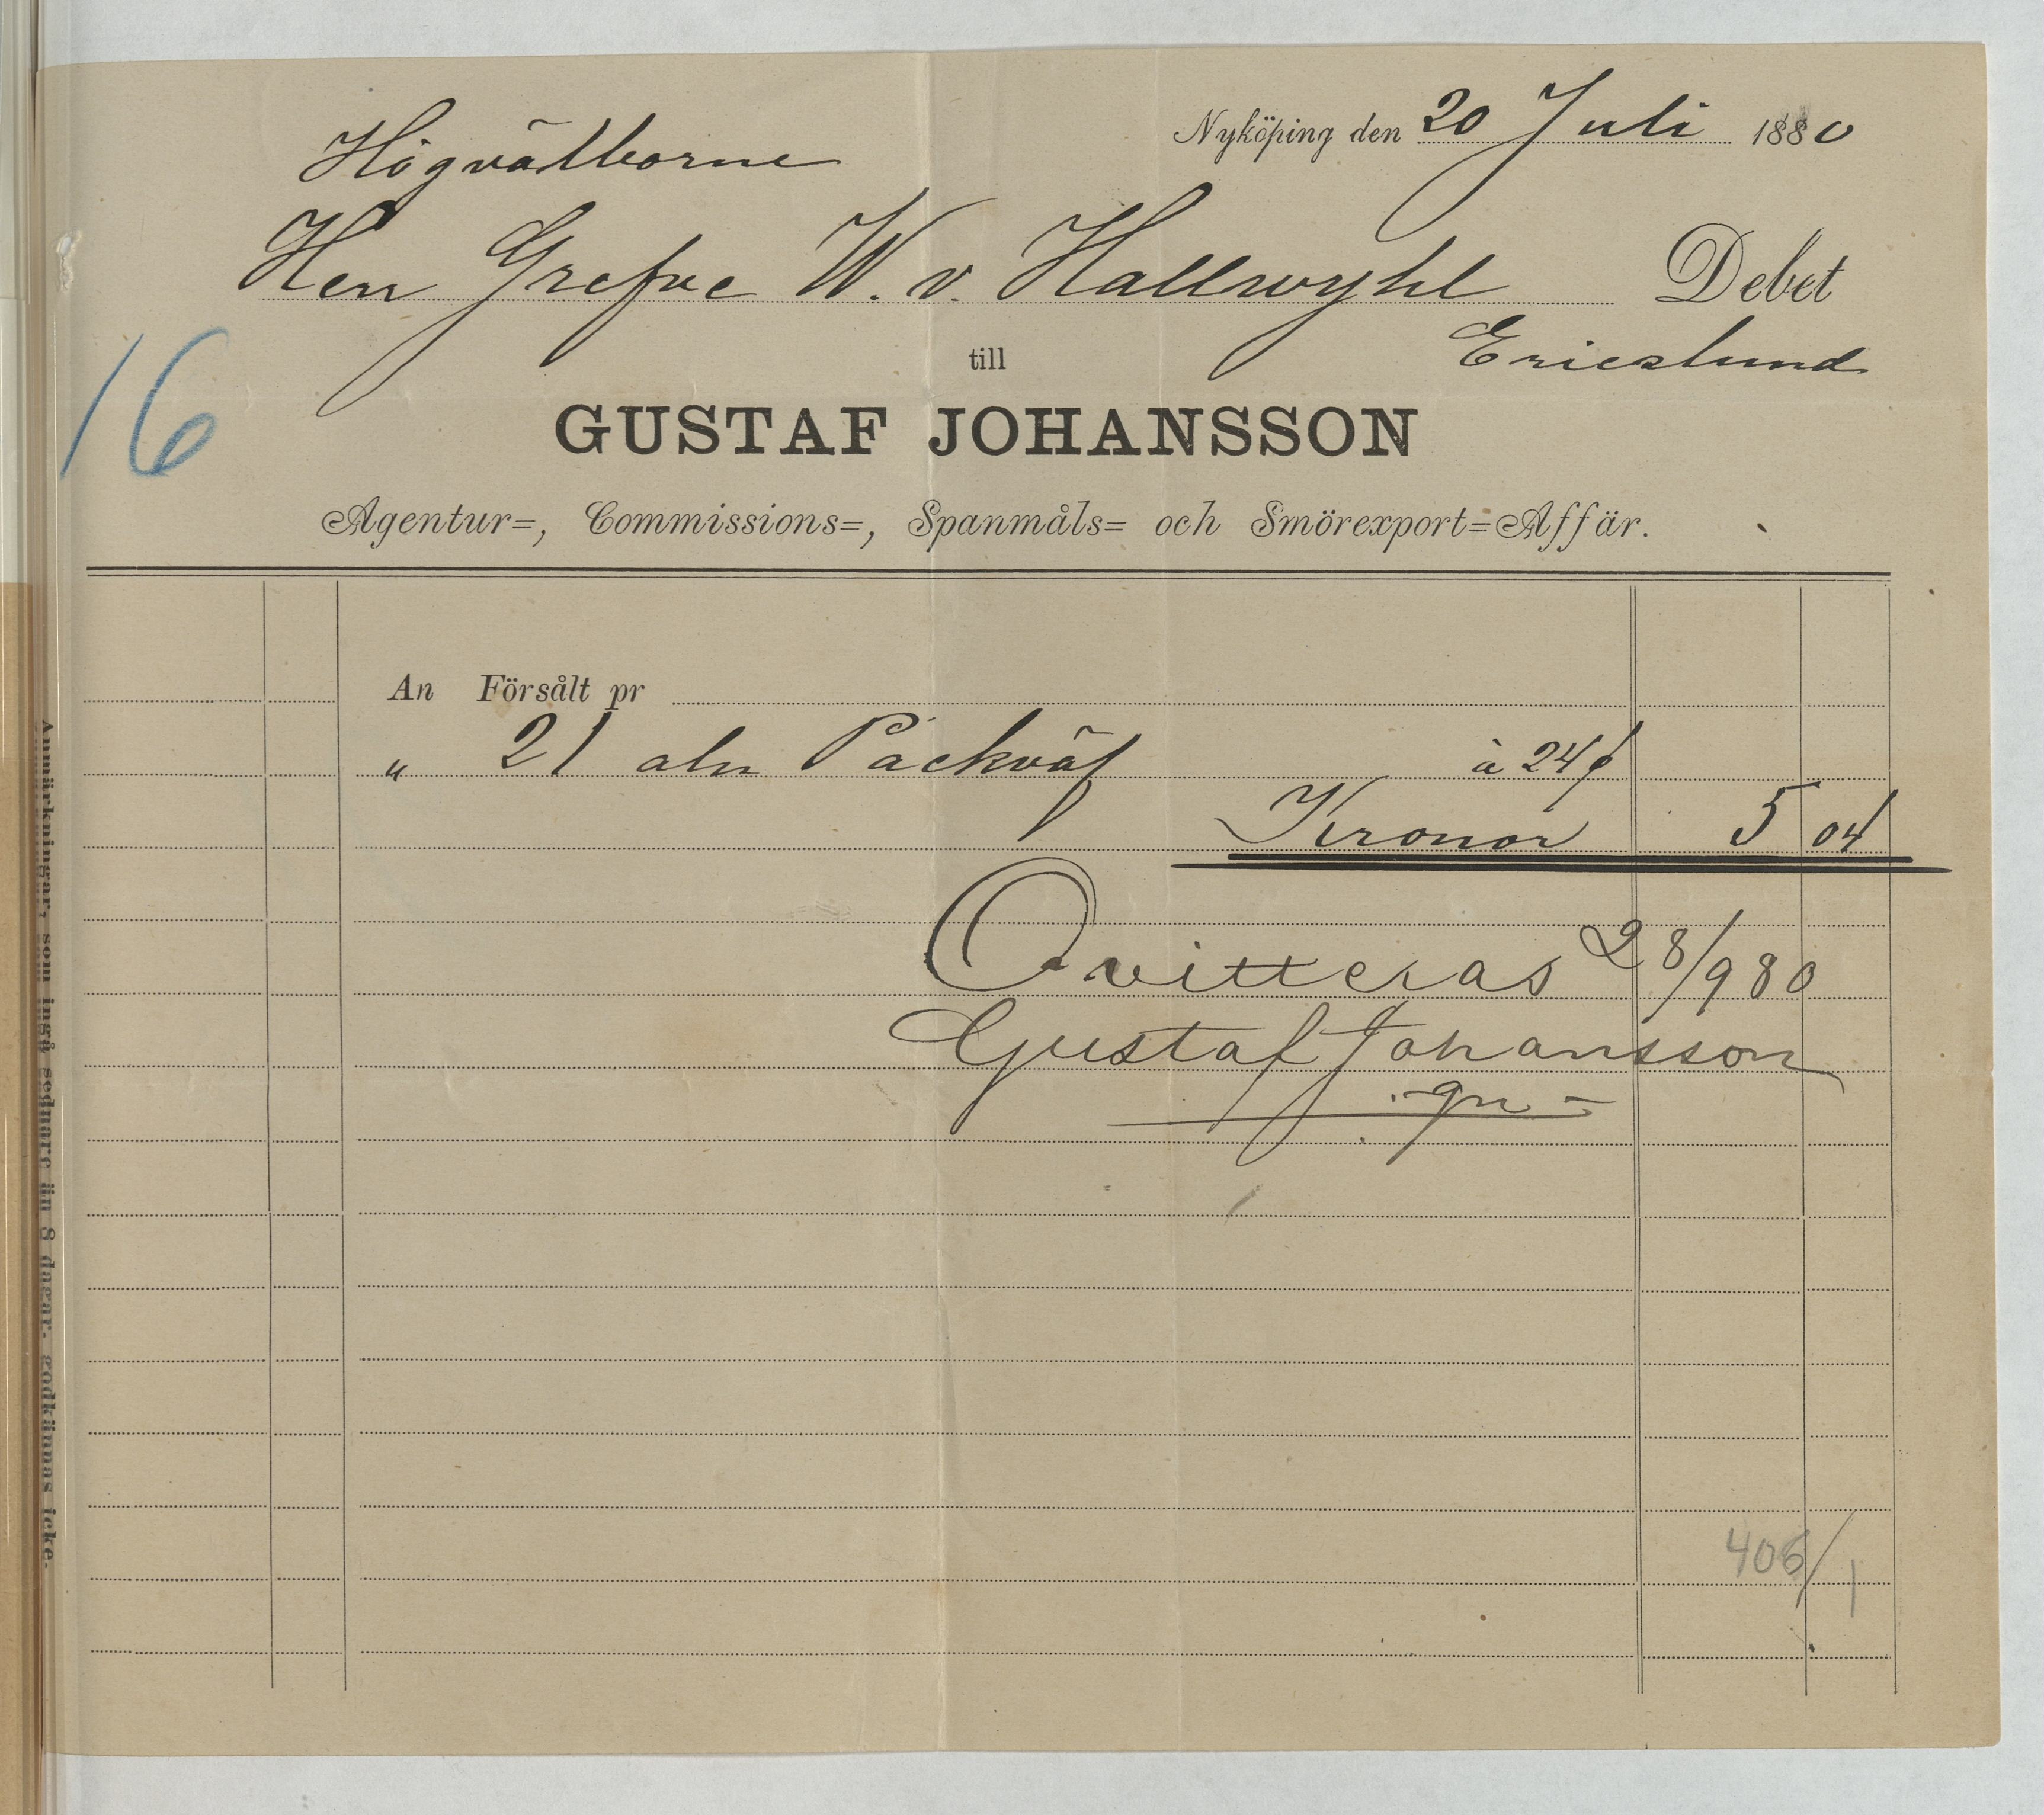 Nyköping den 20 Juli 1880
Högvälborne
Herr Grefve W. v. Hallwyhl Debet
till Ericslund
16
GUSTAF JOHANSSON
Agentur=, Commissions=, Spanmåls= och Smörexport=Affär.
An Försålt pr
" 21 aln Packväf à 24 f
Kronor 5 04
Qvitteras 28/9 80
Gustaf Johansson
gn
406/1
Anmärkningar, som ingå sednare än 8 dagar, godkännas icke.